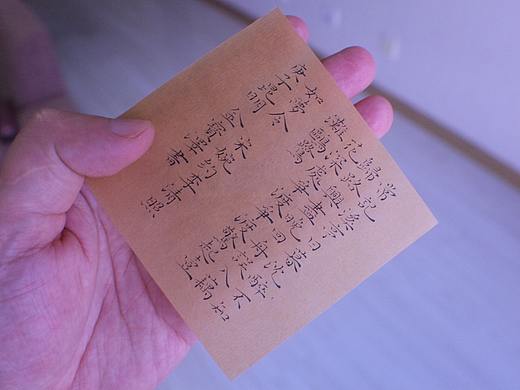 常記溪亭日暮沈醉不知
歸路興盡晚回舟誤入藕
花深處爭渡爭渡驚起壹
灘鷗鷺
如夢令 宋 婉約 李清照
庚子昆明 金寶澤書